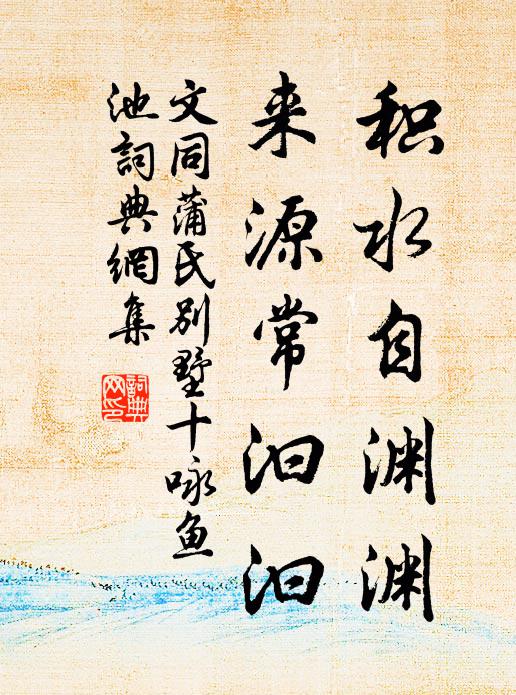 积水自渊渊
来源常汩汩
文同蒲氏别墅十咏鱼
池詞典網集
詞典网印